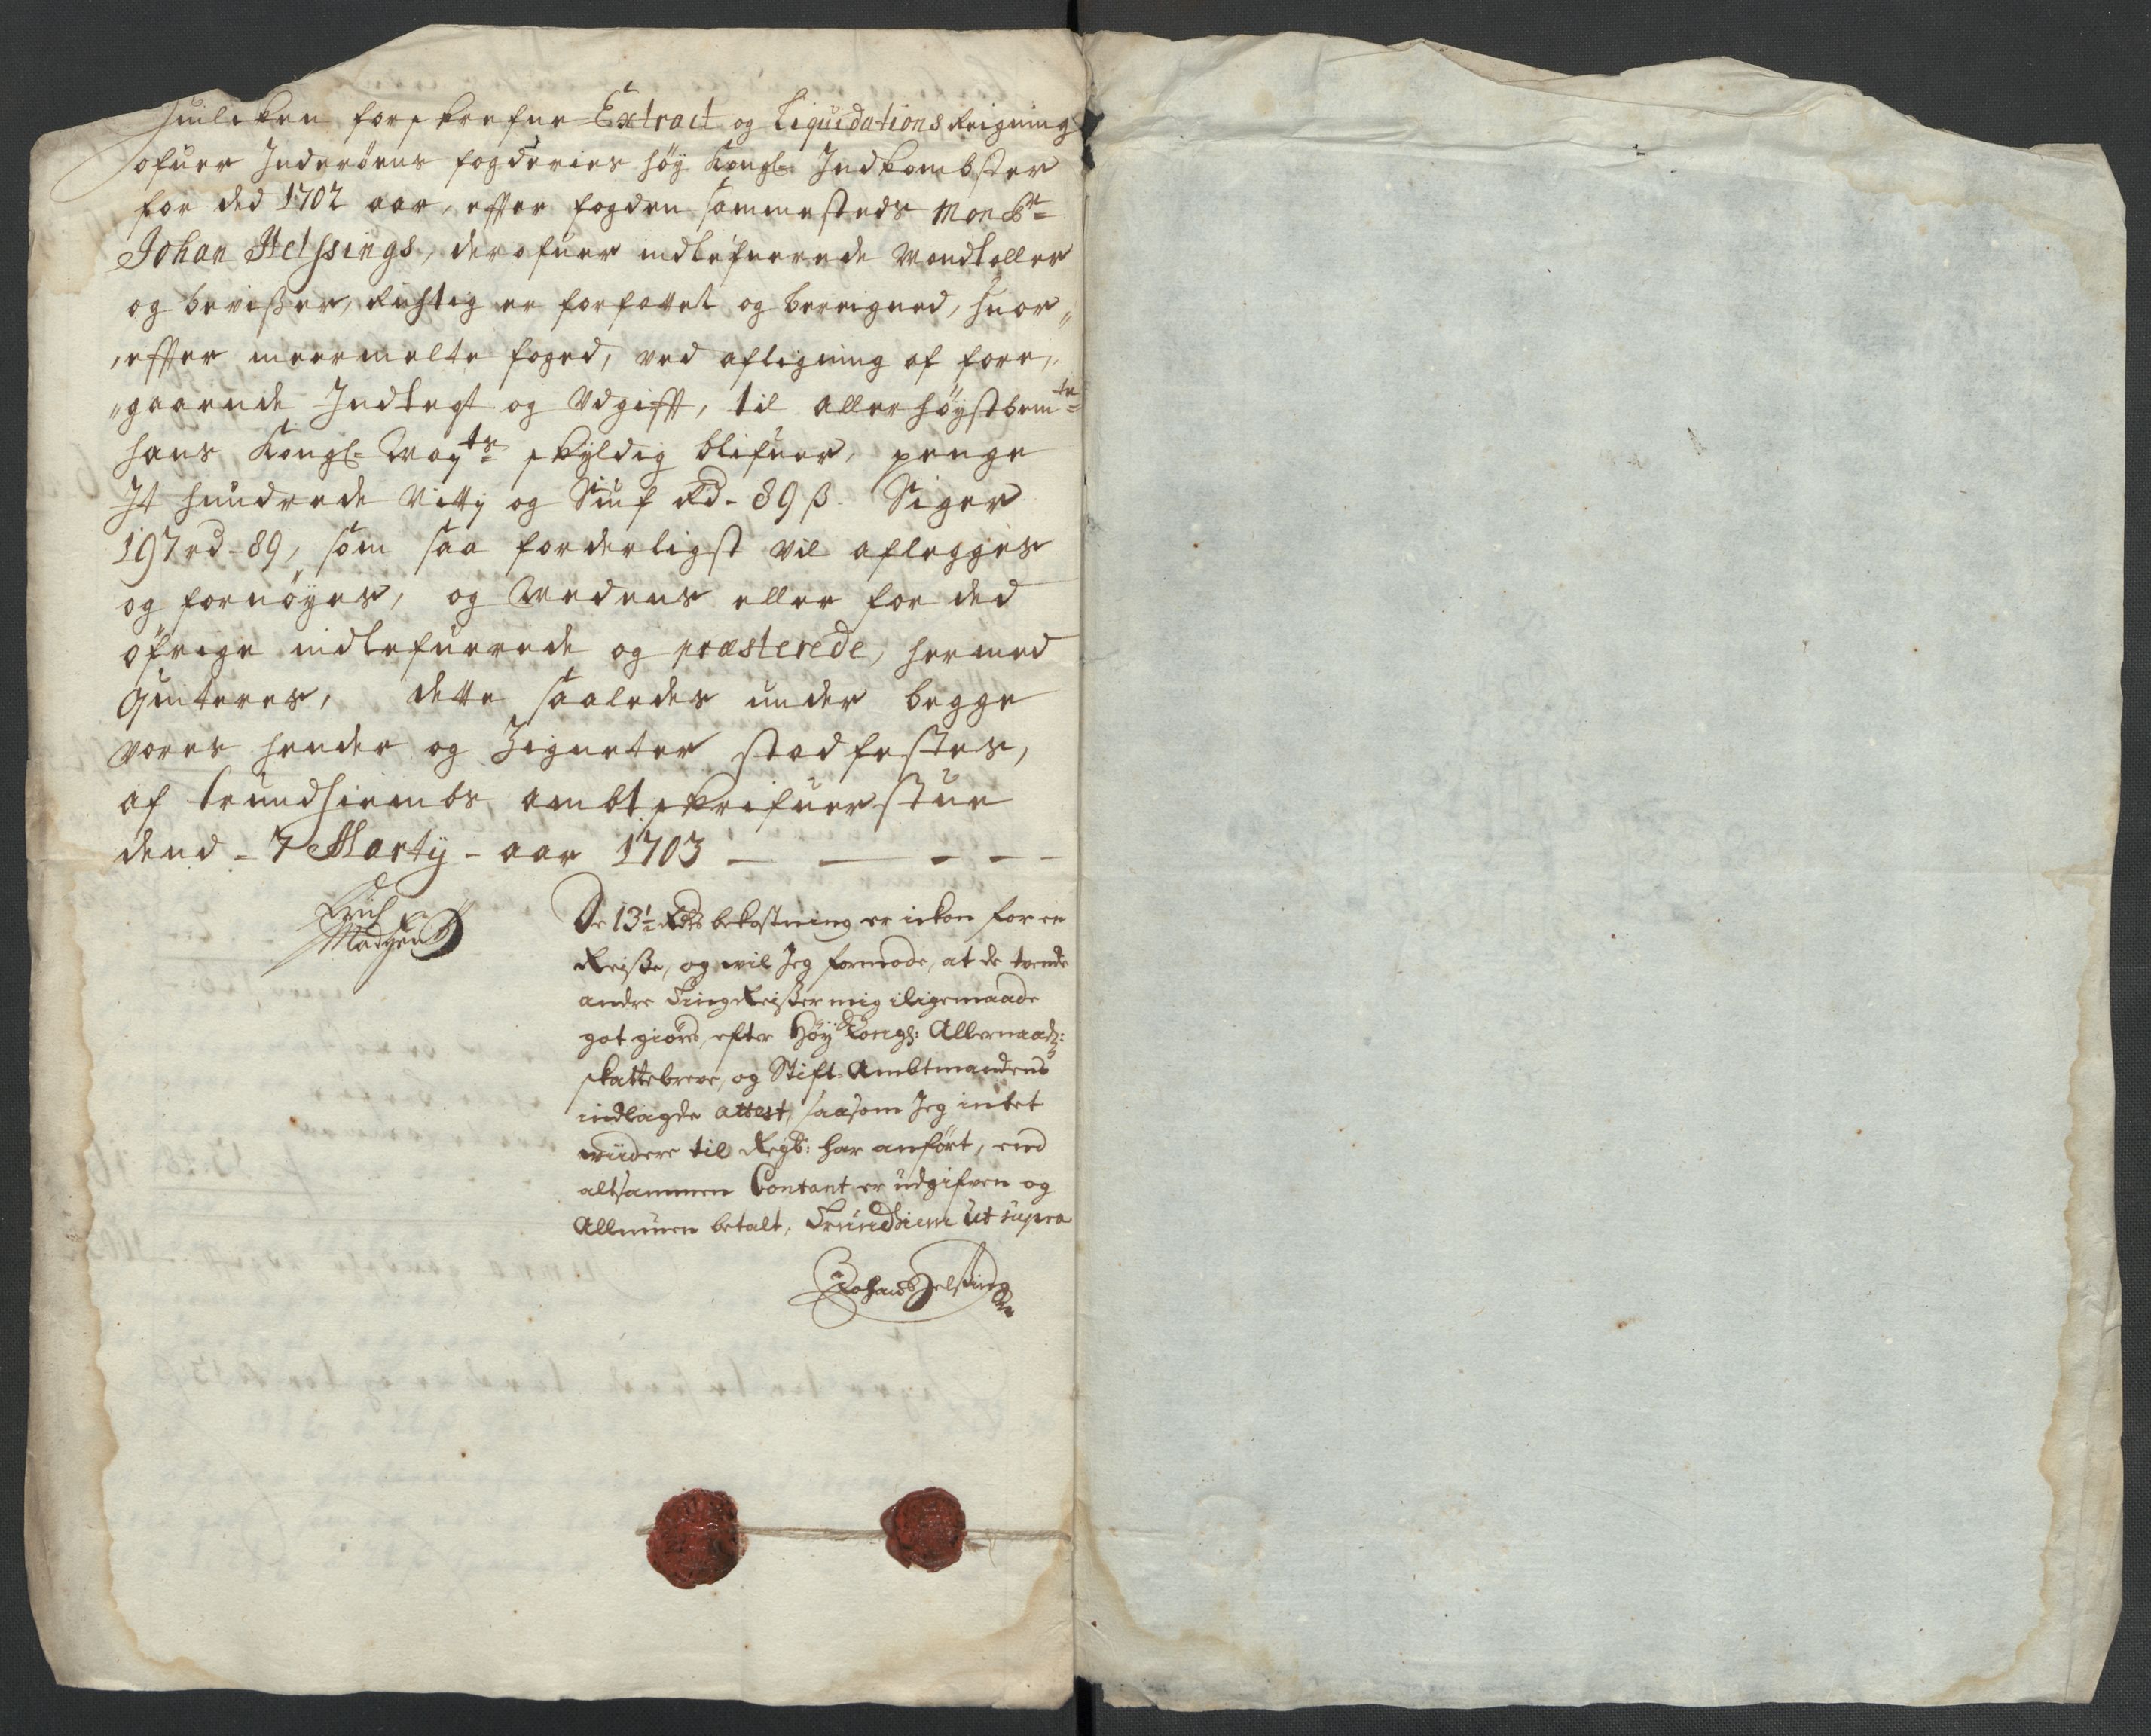 Huilcken forskrefne Extract og Liquidations Reigning
ofuer Inderøens fogderies høy Kongl: Indkombster
for ded 1702 aar, effter fogden sammesteds Monsr
Johan Helssings, derofuer indlefuerede Mandtaller
og bevißer, Richtig er forfattet og bereigned, huor„
„effter meermelte foged, ved afligning af fore„
„gaaende Indtegt og Udgifft, til allerhøystbemte
hans Kongl: Mayts skyldig blifuer, penge
It hundrede Nitti og Siuf Rd - 89 ß. Siger
197 rd - 89, som saa forderligst vil aflegges
og fornøyes, og Medens eller for ded
øfrige indlefuerede og præsterede, hermed
Quiteres, dette saaledes under begge
vores hender og Zigneter stadfestes,
af Trundhiembs ambtskrifuerstue
dend - 7 Marty - aar 1703 - - - - -
Erich
Madzen
De 13½ Rdrs bekostning er ickon for en
Reiße, og wil Jeg formode, at de tvende
andre Ting Reißer mig iligemaade
got giøres, efter Høy Kongl: Allernaadr:
skattebreve, og Stift-Ambtmandens
indlagde attest, saasom Jeg intet
widere til Regb: har anført, end
altsammen Contant er udgifven og
Allmuen betalt, Trundhiem ut supra
Johan Helsing